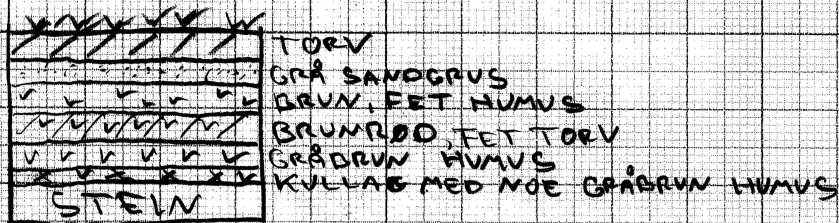 TORV
GRÅ SANDGRUS
BRUN, FET HUMUS
BRUNRØD, FET TORV
GRÅBRUN HUMUS
KULLAG MED NOE GRÅBRUN HUMUS
STEIN